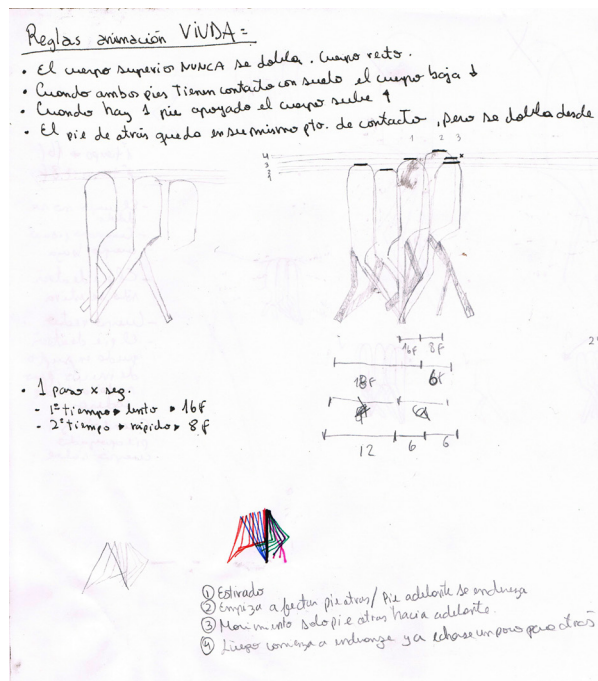 Reglas animación VIUDA =
• El cuerpo superior NUNCA se dobla. Cuerpo recto.
• Cuando ambos pies tienen contacto con suelo el cuerpo baja ↓
• Cuando hay 1 pie apoyado el cuerpo sube ↑
• El pie de atrás queda en su mismo pto. de contacto, pero se dobla desde
1 2 3
4
3
2
1
16f 8f
18f 6f
12 6 6
• 1 paso x seg.
- 1er tiempo ▸ lento ▸ 16f
- 2º tiempo ▸ rápido ▸ 8f
① Estirado
② Empieza a flectar pie atras / Pie adelante se endereza
③ Movimiento solo pie atras hacia adelante.
④ Cuerpo comienza a enderezarse y a echarse un poco para atrás